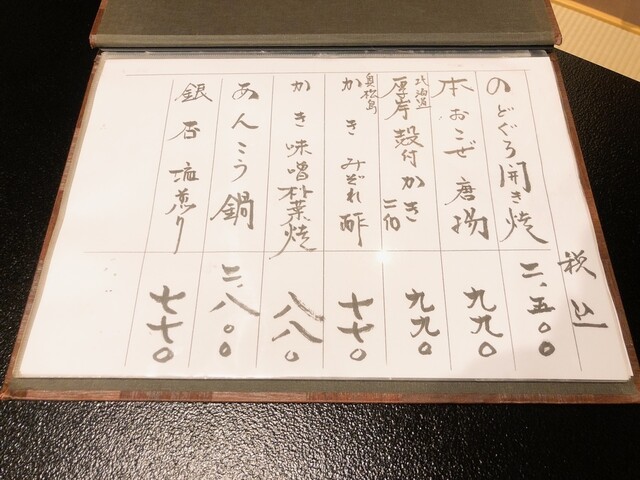 税込
のどぐろ開き焼 二、五〇〇
本おこぜ唐揚 九九〇
北海道
厚岸殻付かき 二個 九九〇
奥松島
かきみぞれ酢 七七〇
かき味噌朴葉焼 八八〇
あんこう鍋 二、八〇〇
銀杏塩煎り 七七〇